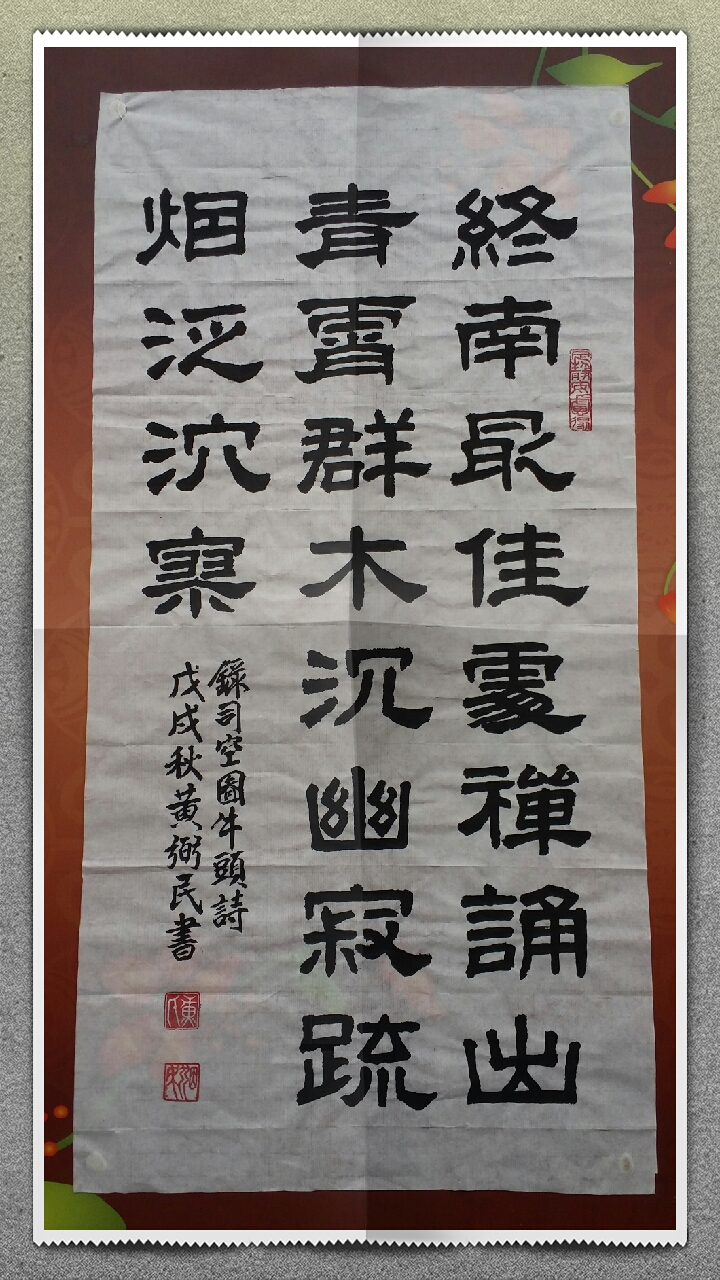 終南最佳處禪誦出
青霄群木沉幽寂疏
烟泛泬寥
錄司空圖牛頭詩
戊戌秋黃弼民書